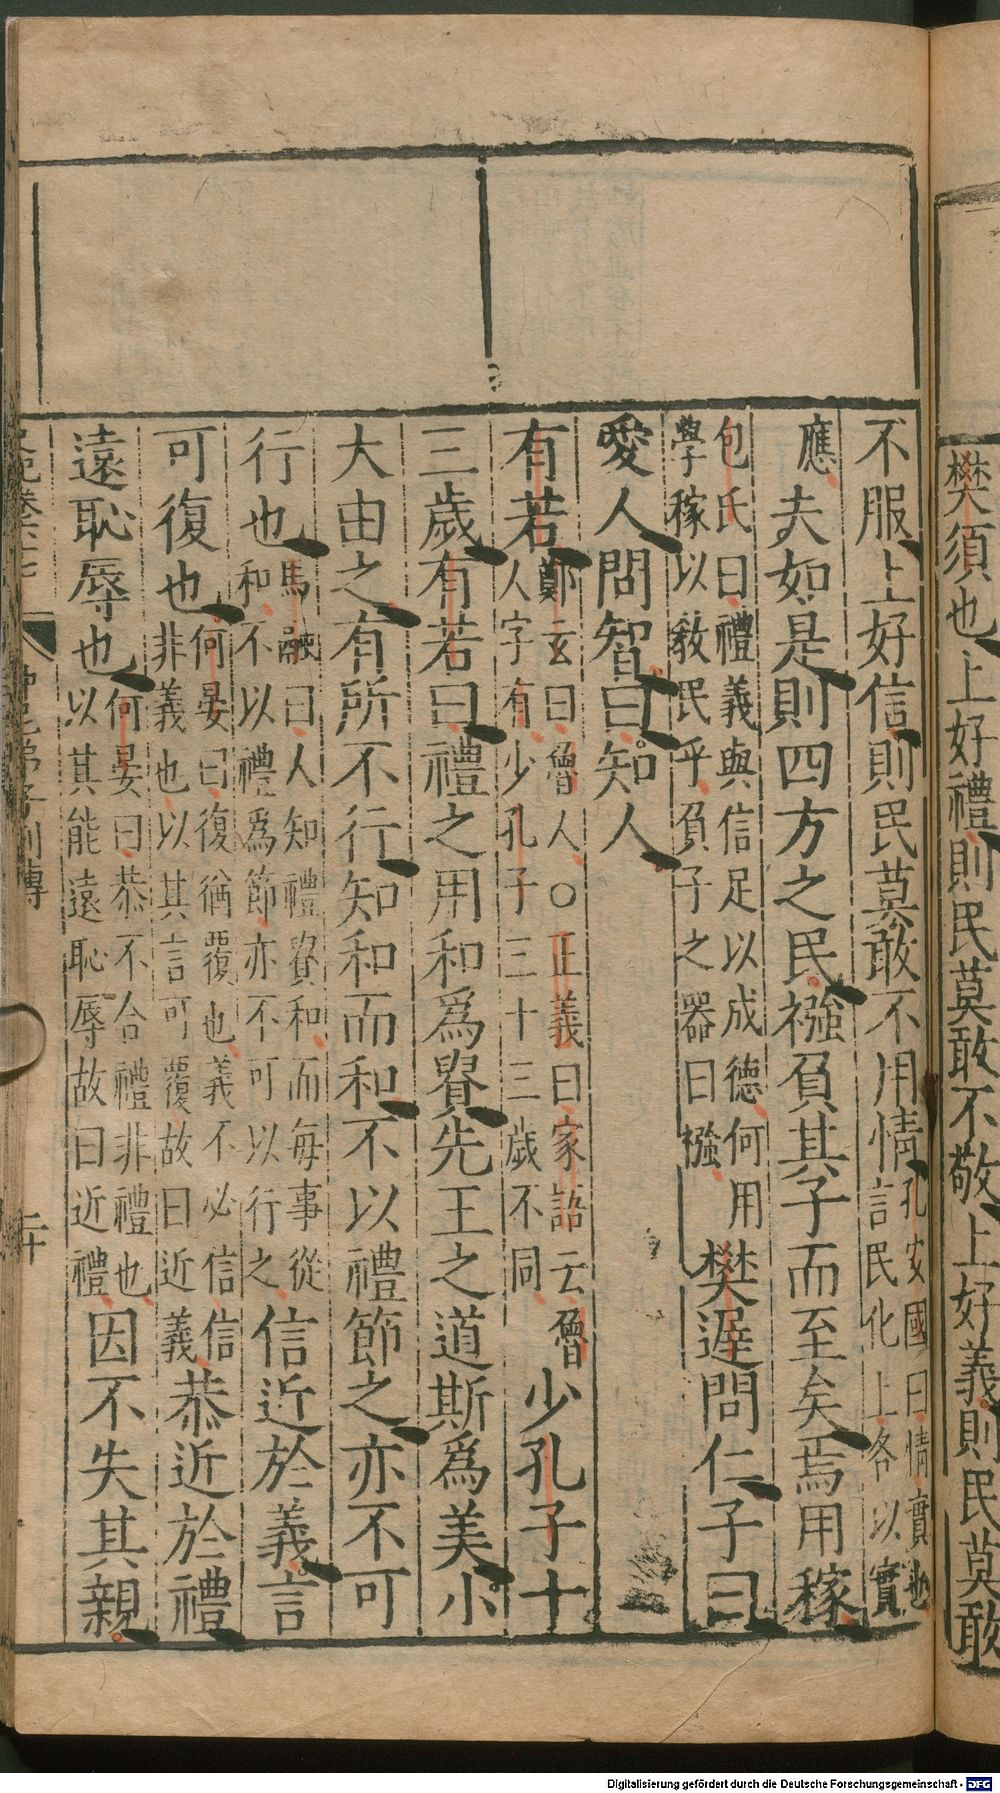 樊須也上好禮則民莫敢不敬上好義則民莫敢
不服上好信則民莫敢不用情孔安國曰情實也言民化上各以實
應夫如是則四方之民襁負其子而至矣焉用稼
包氏曰禮義與信足以成德何用學稼以敎民乎負子之器曰襁樊遲問仁子曰
愛人問智曰知人
有若鄭玄曰魯人○正義曰家語云魯人字有少孔子三十三歲不同少孔子十
三歲有若曰禮之用和爲貴先王之道斯爲美小
大由之有所不行知和而和不以禮節之亦不可
行也馬融曰人知禮貴和而每事從和不以禮爲節亦不可以行之信近於義言
可復也何晏曰復猶覆也義不必信信非義也以其言可覆故曰近義恭近於禮
遠恥辱也何晏曰恭不合禮非禮也以其能遠恥辱故曰近禮因不失其親
弟子列傳
二十
Digitalisierung gefördert durch die Deutsche Forschungsgemeinschaft - DFG